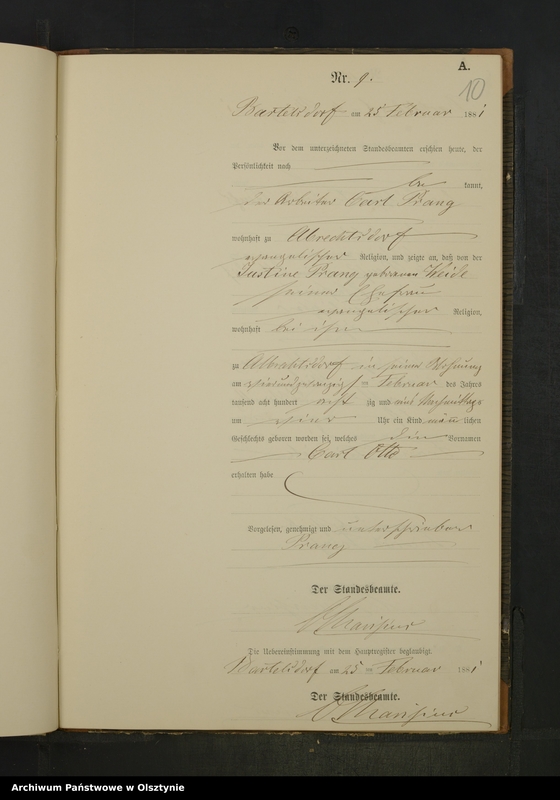 A.
Nr. 9.
10
Bartelsdorf am 25 Februar 1881
Vor dem unterzeichneten Standesbeamten erschien heute, der
Persönlichkeit nach
be kannt,
der Arbeiter Carl Prang
wohnhaft zu Albrechtsdorf
evangelischer Religion, und zeigte an, daß von der
Justine Prang geborenen Heide
seiner Ehefrau
evangelischer Religion,
wohnhaft bei ihm
zu Albrechtsdorf in seiner Wohnung
am vierundzwanzigsten Februar des Jahres
tausend acht hundert acht zig und eins Nachmittags
um Uhr ein Kind männ lichen
Geschlechts geboren worden sei, welches die Vornamen
Carl Otto
erhalten habe
Vorgelesen, genehmigt und unterschrieben
Prang
Der Standesbeamte.
Die Uebereinstimmung mit dem Hauptregister beglaubigt.
Bartelsdorf am 25 ten Februar 1881
Der Standesbeamte.
Archiwum Państwowe w Olsztynie